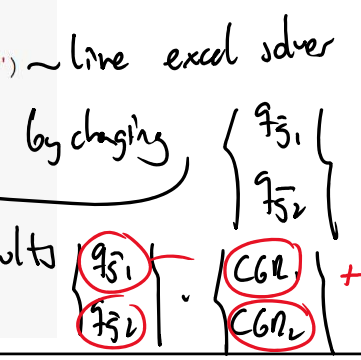 ') ~ live excel solver
by changing { q_s̄1
q_s̄2 }
ults { q_s̄1 } · { CGR1 } +
{ q_s̄2 } { CGR2 }